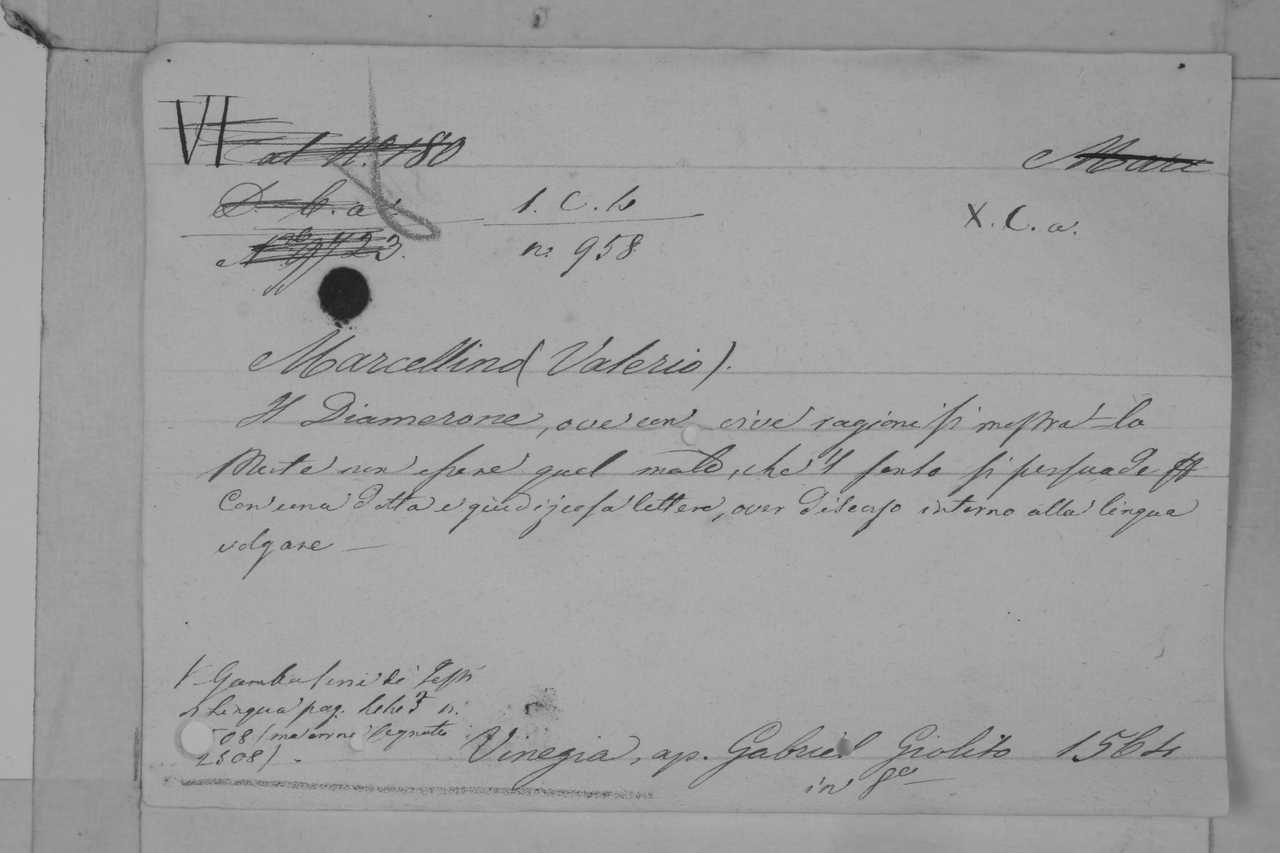 VI Cat N.º 180
D. C. a. 1. C. b X. C. a.
n. 958
Marcellino (Valerio).
Il Diamerone, ove con vive ragioni si mostra la
Morte non essere quel male, che'l senso si persuade
Con una dotta e giudiziosa lettera, over discorso intorno alla lingua
volgare —
V. Gamba serie dei Testi
di Lingua pag. n.
1508)
Vinegia, ap. Gabriel Giolito 1564
in 8º